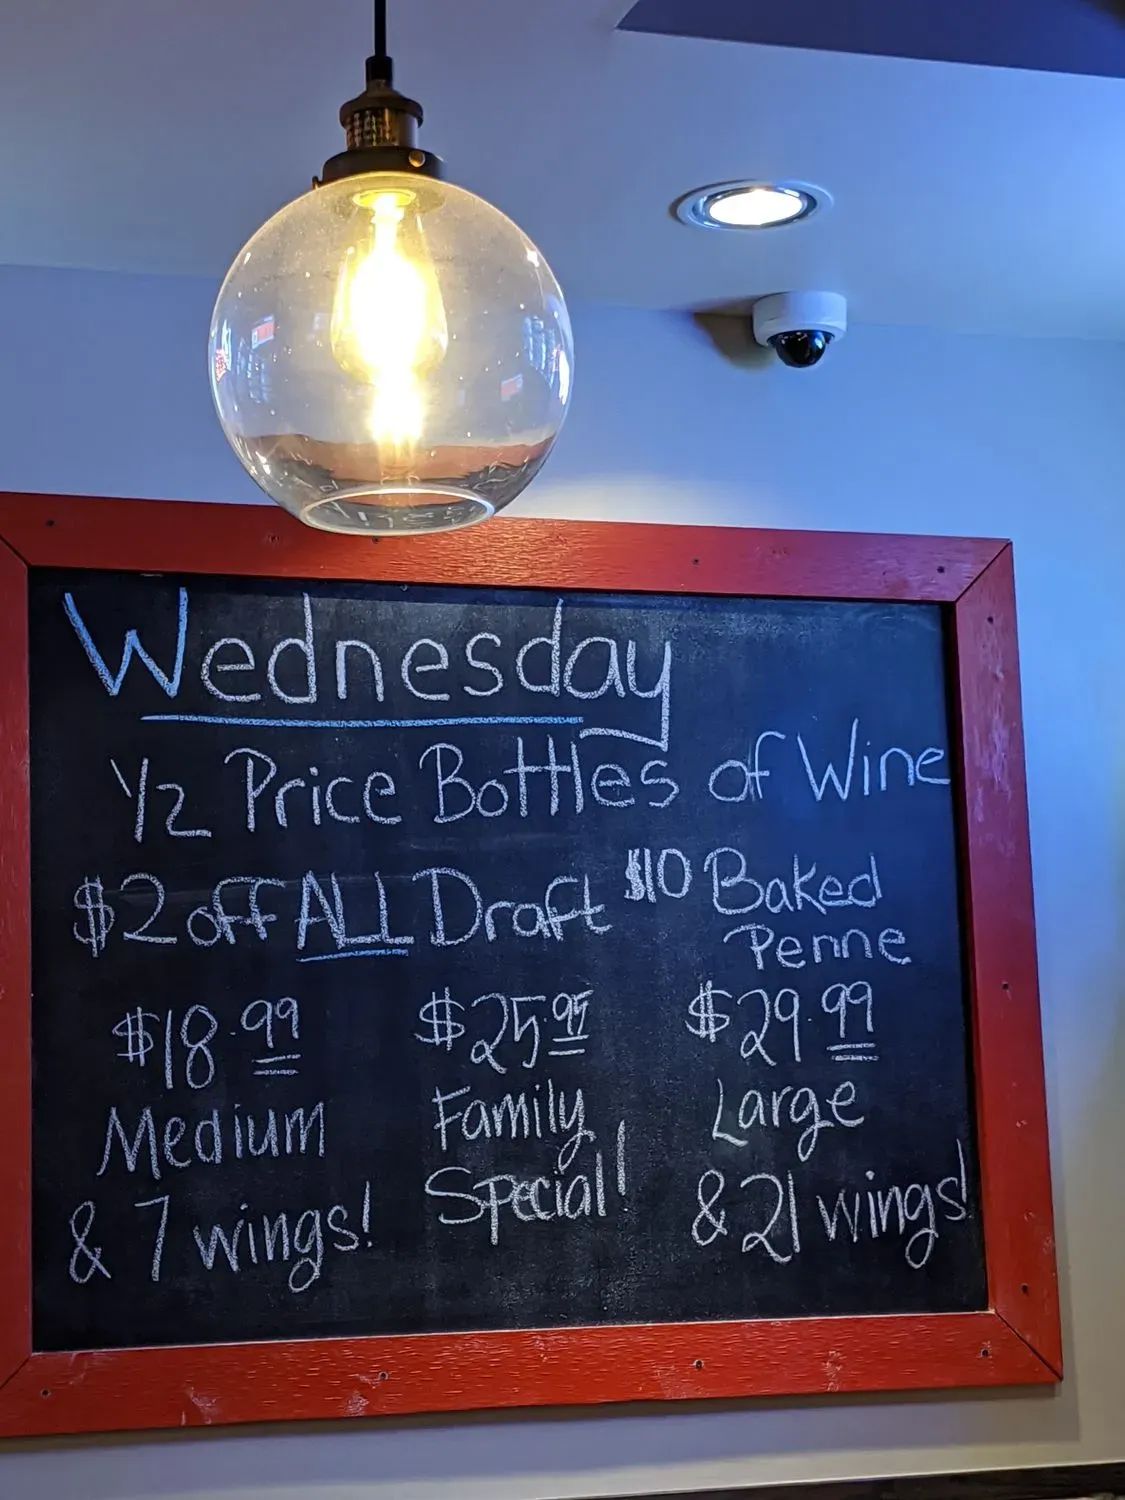 Wednesday
1/2 Price Bottles of Wine
$2 off ALL Draft $10 Baked
Penne
$18.99 $25.95 $29.99
Medium Family Large
& 7 wings! Special! & 21 wings!